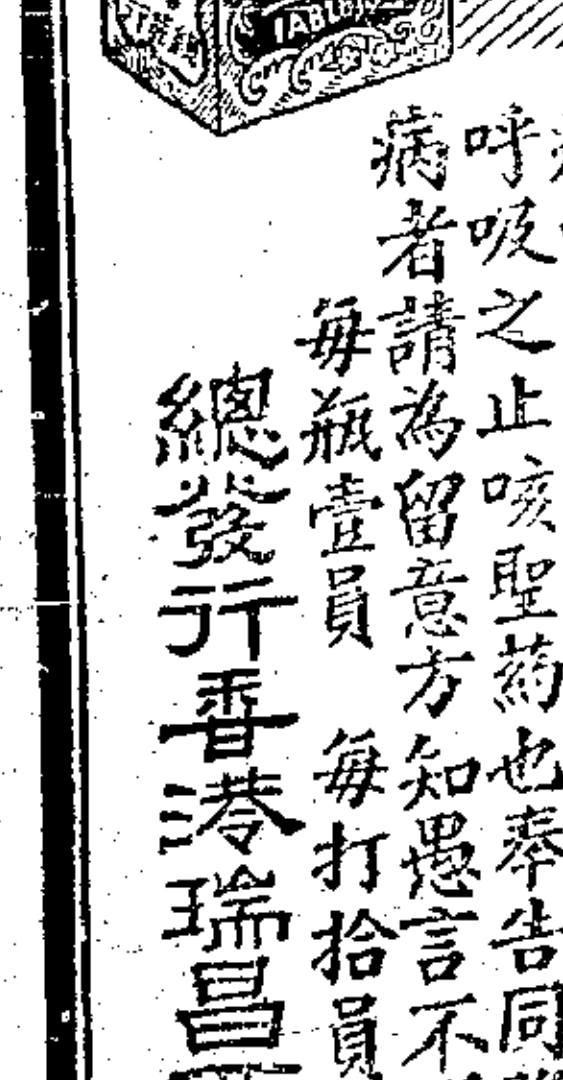 TABL
呼吸之止咳聖葯也奉告同
病者請為留意方知愚言不
每瓶壹員 每打拾員
總發行香港瑞昌